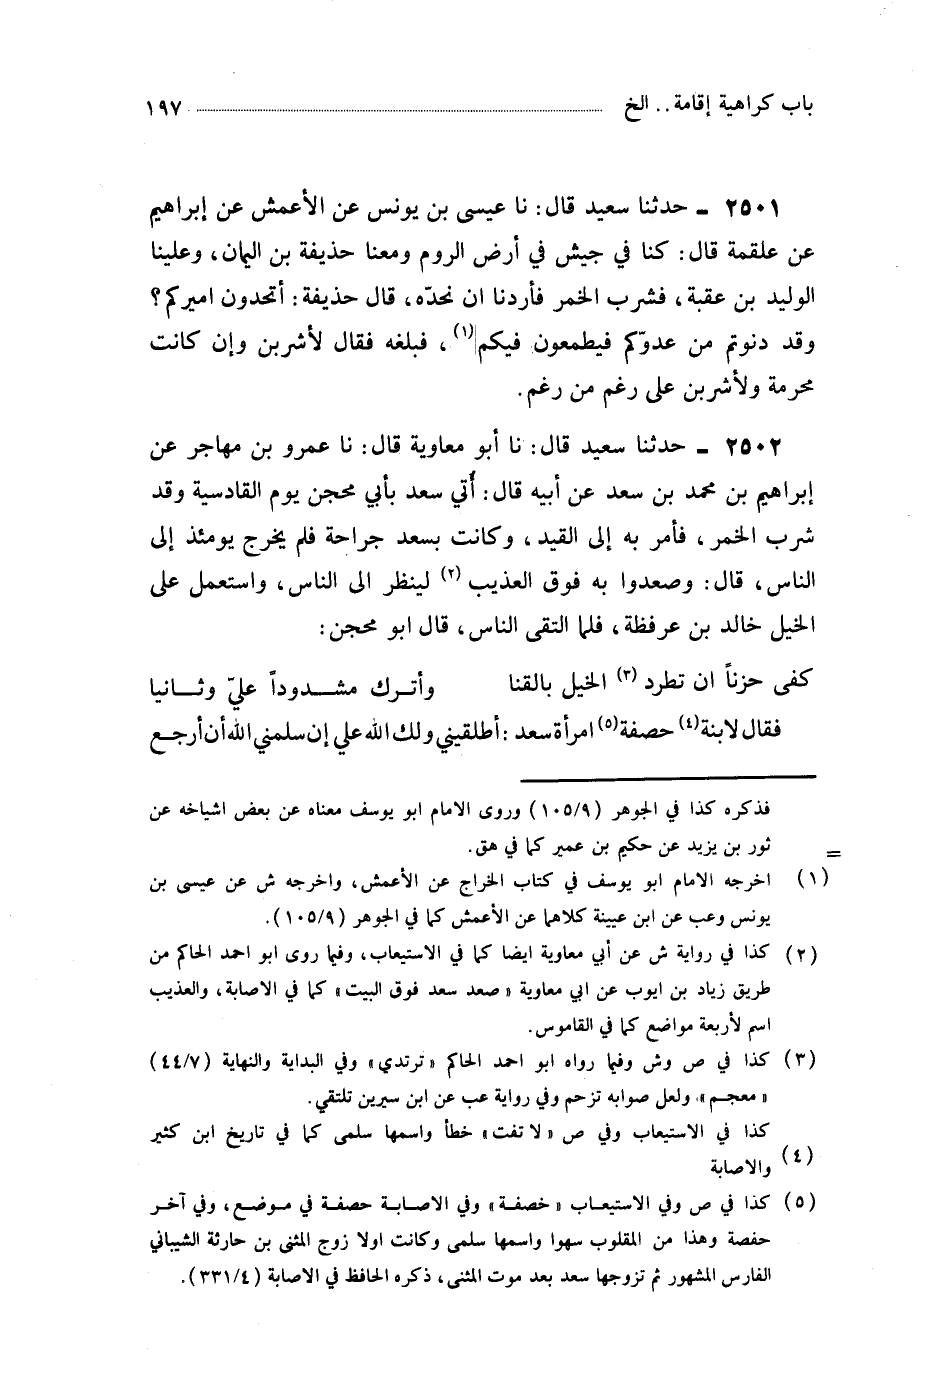 باب كراهية إقامة .. الخ ـــــــــــــــــ ١٩٧
٢٥٠١ ـ حدثنا سعيد قال: نا عيسى بن يونس عن الأعمش عن إبراهيم
عن علقمة قال: كنا في جيش في أرض الروم ومعنا حذيفة بن اليمان، وعلينا
الوليد بن عقبة، فشرب الخمر فأردنا ان نحدّه، قال حذيفة: أتحدون اميركم؟
وقد دنوتم من عدوّكم فيطمعون فيكم (١)، فبلغه فقال لأشربن وإن كانت
محرمة ولأشربن على رغم من رغم.
٢٥٠٢ ـ حدثنا سعيد قال: نا أبو معاوية قال: نا عمرو بن مهاجر عن
إبراهيم بن محمد بن سعد عن أبيه قال: أُتي سعد بأبي محجن يوم القادسية وقد
شرب الخمر، فأمر به إلى القيد، وكانت بسعد جراحة فلم يخرج يومئذ إلى
الناس، قال: وصعدوا به فوق العذيب (٢) لينظر الى الناس، واستعمل على
الخيل خالد بن عرفظة، فلما التقى الناس، قال ابو محجن:
كفى حزناً ان تطرد (٣) الخيل بالقنا وأتـرك مشـــدوداً عليّ وثـــانيا
فقال لابنة (٤) حصفة (٥) امرأة سعد: أطلقيني ولك الله علي إن سلمني الله أن أرجـع
فذكره كذا في الجوهر (١٠٥/٩) وروى الامام ابو يوسف معناه عن بعض اشياخه عن
= ثور بن يزيد عن حكيم بن عمير كما في هق.
(١) اخرجه الامام ابو يوسف في كتاب الخراج عن الأعمش، واخرجه ش عن عيسى بن
يونس وعب عن ابن عيينة كلاهما عن الأعمش كما في الجوهر (١٠٥/٩).
(٢) كذا في رواية ش عن أبي معاوية ايضا كما في الاستيعاب، وفيما روى ابو احمد الحاكم من
طريق زياد بن ايوب عن ابي معاوية «صعد سعد فوق البيت» كما في الاصابة، والعذيب
اسم لأربعة مواضع كما في القاموس.
(٣) كذا في ص وش وفيما رواه ابو احمد الحاكم «ترتدي» وفي البداية والنهاية (٤٤/٧)
«معجـم»، ولعل صوابه تزحم وفي رواية عب عن ابن سيرين تلتقي.
(٤) كذا في الاستيعاب وفي ص «لا تفت» خطأ واسمها سلمى كما في تاريخ ابن كثير
والاصابة
(٥) كذا في ص وفي الاستيعـاب «خصفـة» وفي الاصـابـة حصفـة في مـوضـع، وفي آخـر
حفصة وهذا من المقلوب سهوا واسمها سلمى وكانت اولا زوج المثنى بن حارثة الشيباني
الفارس المشهور ثم تزوجها سعد بعد موت المثنى، ذكره الحافظ في الاصابة (٣٣١/٤).